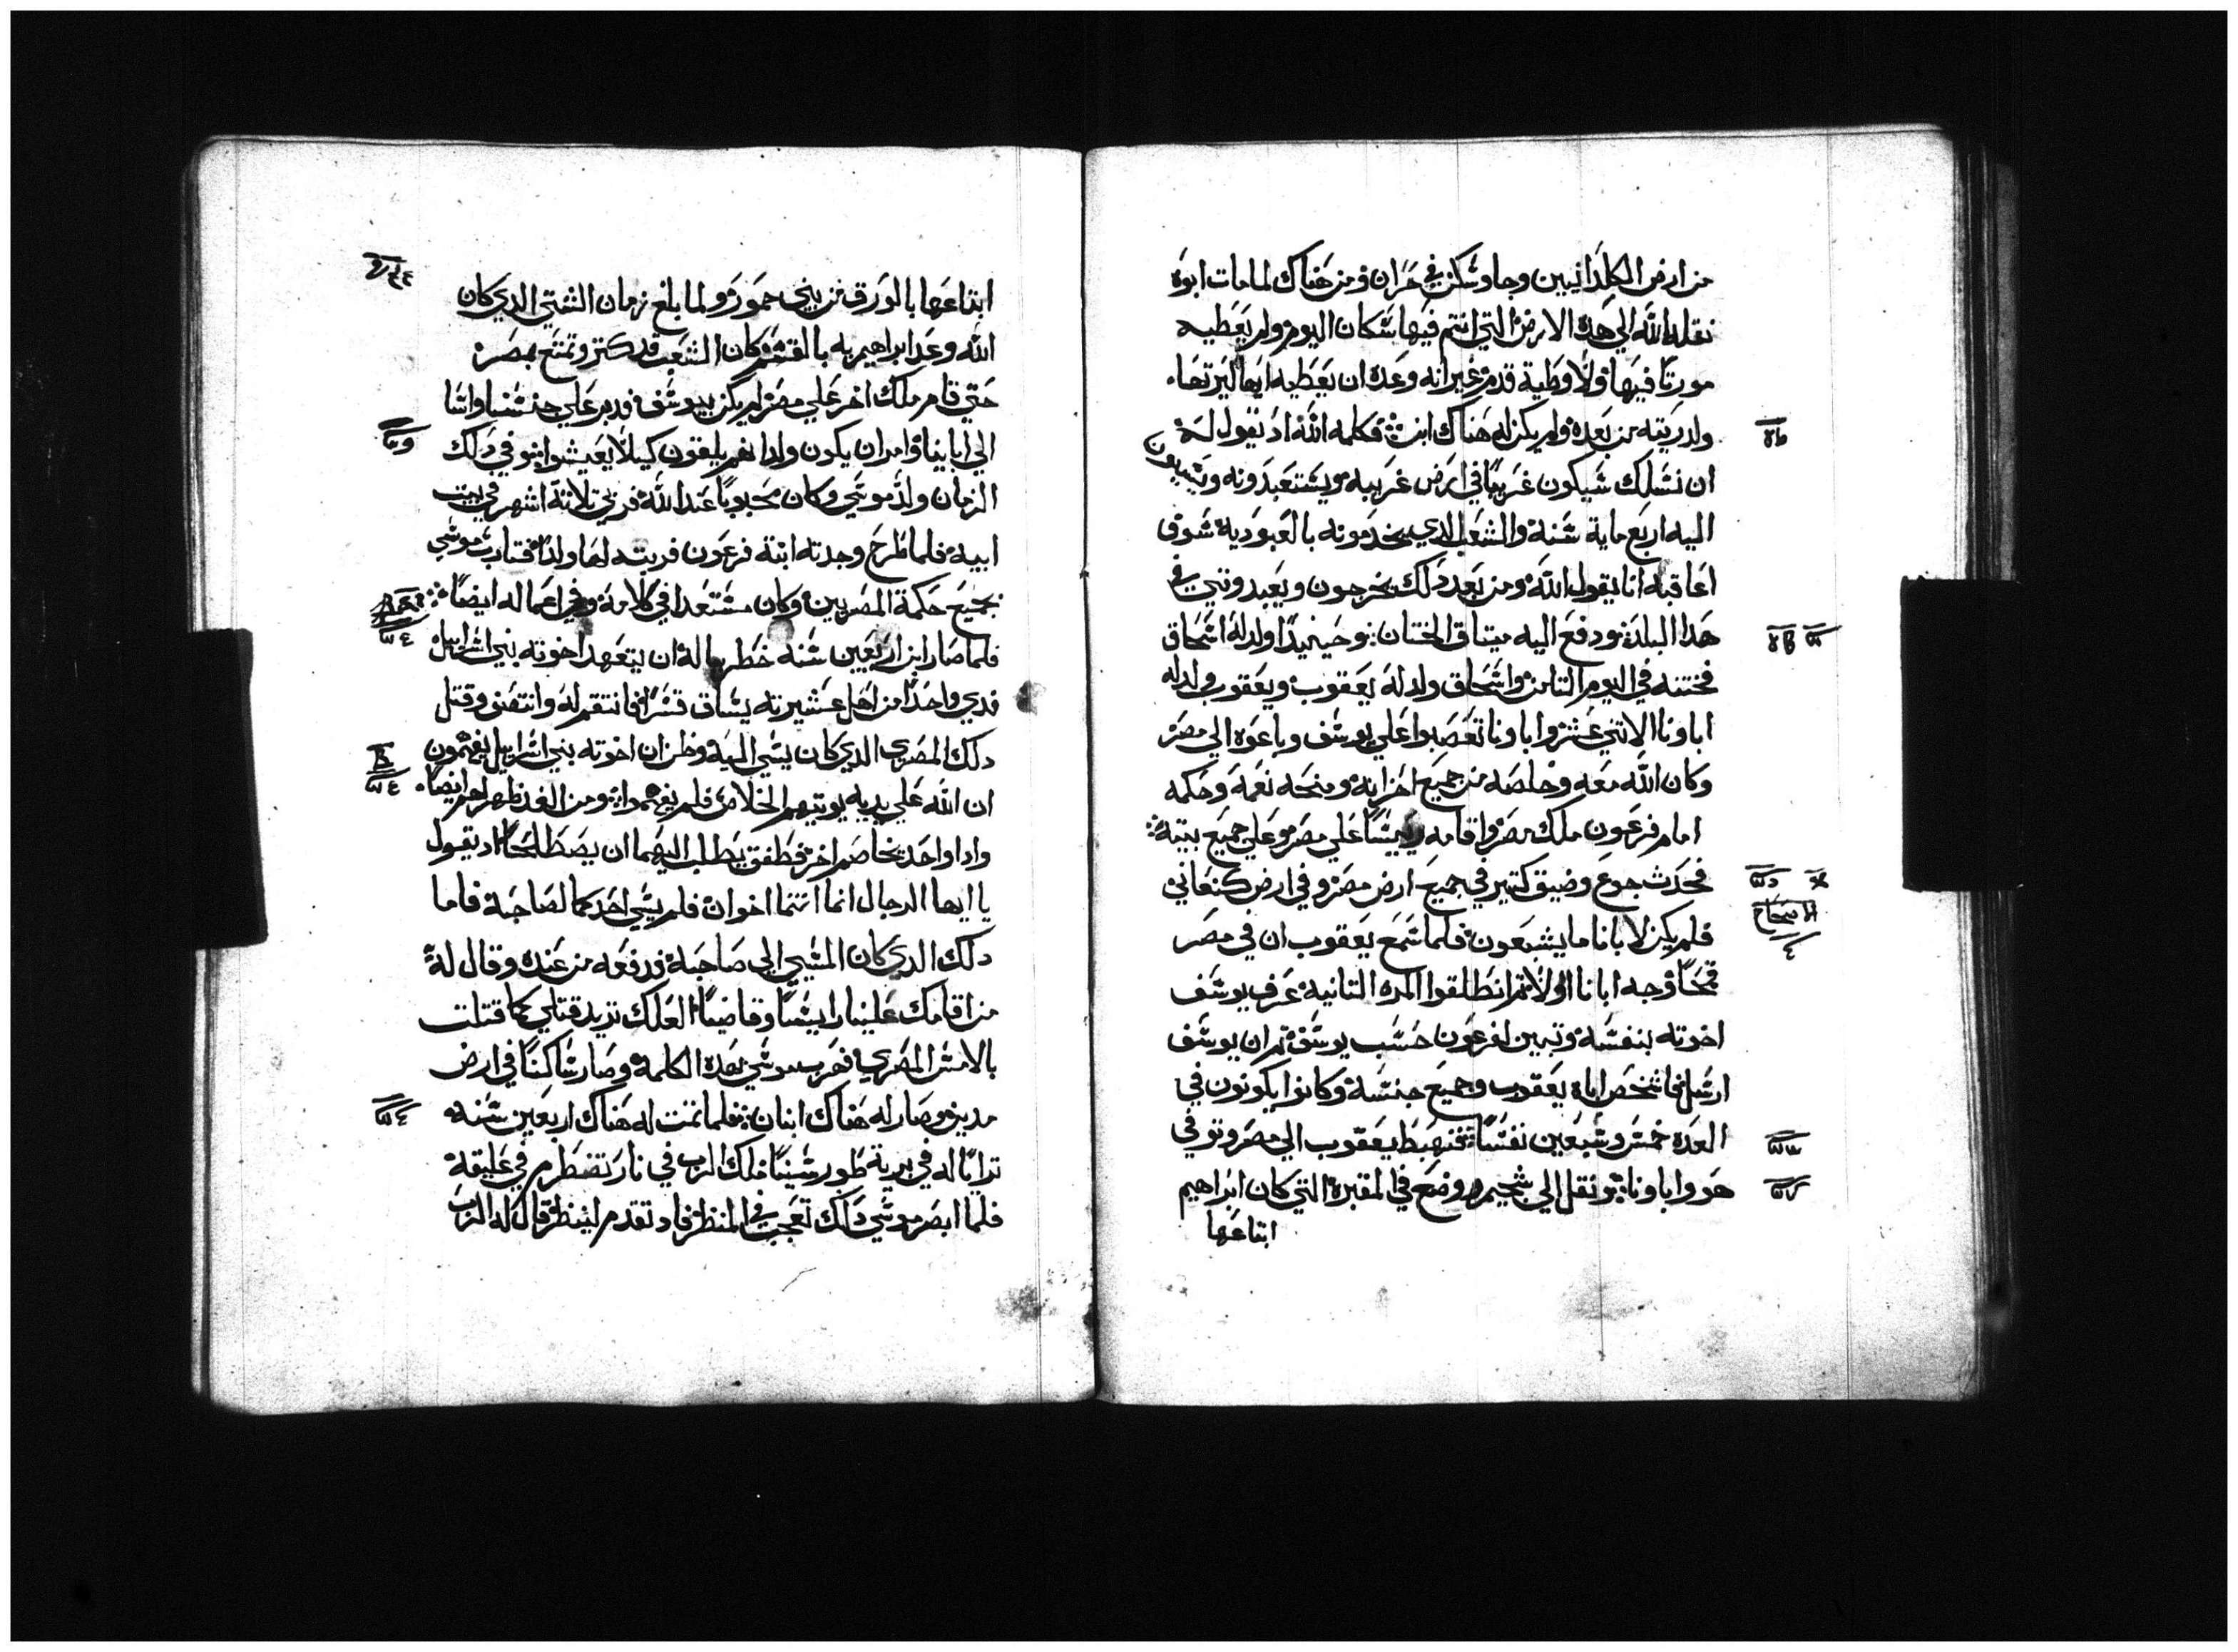 من ارض الكلدانيين وجا وسكن في حران ومن هناك لما مات ابوه
نقله الله الي هده الارض التي انتم فيها سكان اليوم ولم يعطيه
مورتا فيها ولا وطية قدم غير انه وعده ان يعطيه اياها ليرتها
ولدريته من بعده ولم يكن له هناك ابن فكلمه الله اد يقول له
ان نسلك سيكون غريبا في ارض غريبه ويستعبدونه ويسييون
اليه اربع ماية سنة والشعب الدي يخدمونه بالعبودية سوف
اعاقبه انا يقول الله ومن بعد دلك يخرجون ويعبدونني في
هدا البلد ودفع اليه ميتاق الختان وحينيدا ولد له اسحاق
فختنه في اليوم التامن واسحاق ولد له يعقوب ويعقوب ولد له
اباونا الاتني عشر واباونا تعصبوا علي يوسف وباعوه الي مصر
وكان الله معه وخلصه من جميع احزانه ومنحه نعمة وحكمه
امام فرعون ملك مصر واقامه رييسا علي مصر وعلي جميع بيته
فحدت جوع وضيق كتير في جميع ارض مصر وفي ارض كنعان
الاصحاح
فلم يكن لابانا ما يشبعون فلما سمع يعقوب ان في مصر
قمحا وجه ابانا اولا تم انطلقوا المره التانيه عرف يوسف
اخوته بنفسه وتبين لفرعون حسب يوسف تم ان يوسف
ارسل فاشخص اباه يعقوب وجميع جنسه وكانوا يكونون في
العده خمس وسبعين نفسا فهبط يعقوب الي مصر وتوفي
هو واباونا ونقل الي شحيم ووضع في المقبرة التي كان ابراهيم
ابتاعها
ابتاعها بالورق من بني حمور ولما بلغ زمان الشي الدي كان
الله وعد ابراهيم به بالقسم كان الشعب قد كتر وتمتع بمصر
حتي قام ملك اخر علي مصر لم يكن يوسف فدبر علي جنسنا واسا
الي ابايينا وامر ان يكون ولدانهم يلقون كيلا يعيشوا وفي دلك
الزمان ولد موسي وكان محبوبا عند الله فربي تلاتة اشهر في بيت
ابيه فلما طرح وجدته ابنة فرعون فربته لها ولدا فتادب موسي
بجميع حكمة المصريين وكان مستعدا في كلامه وفي اعماله ايضا
فلما صار ابن اربعين سنه خطر بباله ان يتعهد اخوته بني اسراييل
فدي واحدا من اهل عشيرته يساق قسرا فانتقم له وانتصف وقتل
دلك المصري الدي كان يسي اليه وظن ان اخوته بني اسراييل يفهمون
ان الله علي يديه يوتيهم الخلاص فلم يفهموا ومن الغد ظهر لهم ايضا
وادا واحد يخاصم اخر فطفق يطلب اليهما ان يصطلحا اد يقول
يا ايها الرجال انما انتما اخوان فلم يسي احدكما لصاحبه فاما
دلك الدي كان المسي الي صاحبه فدفعه من عنده وقال له
من اقامك علينا راييسا وقاضيا العلك تريد قتلي كما قتلت
بالامس المصري فهرب موسي بهده الكلمه وصار ساكنا في ارض
مدين وصار له هناك ابنان فلما تمت له هناك اربعين سنه
ترايا له في برية طور سينا ملك الرب في نار تضطرم في عليقه
فلما ابصر موسي دلك تعجب في المنظر فاد تقدم لينظر قال له الرب